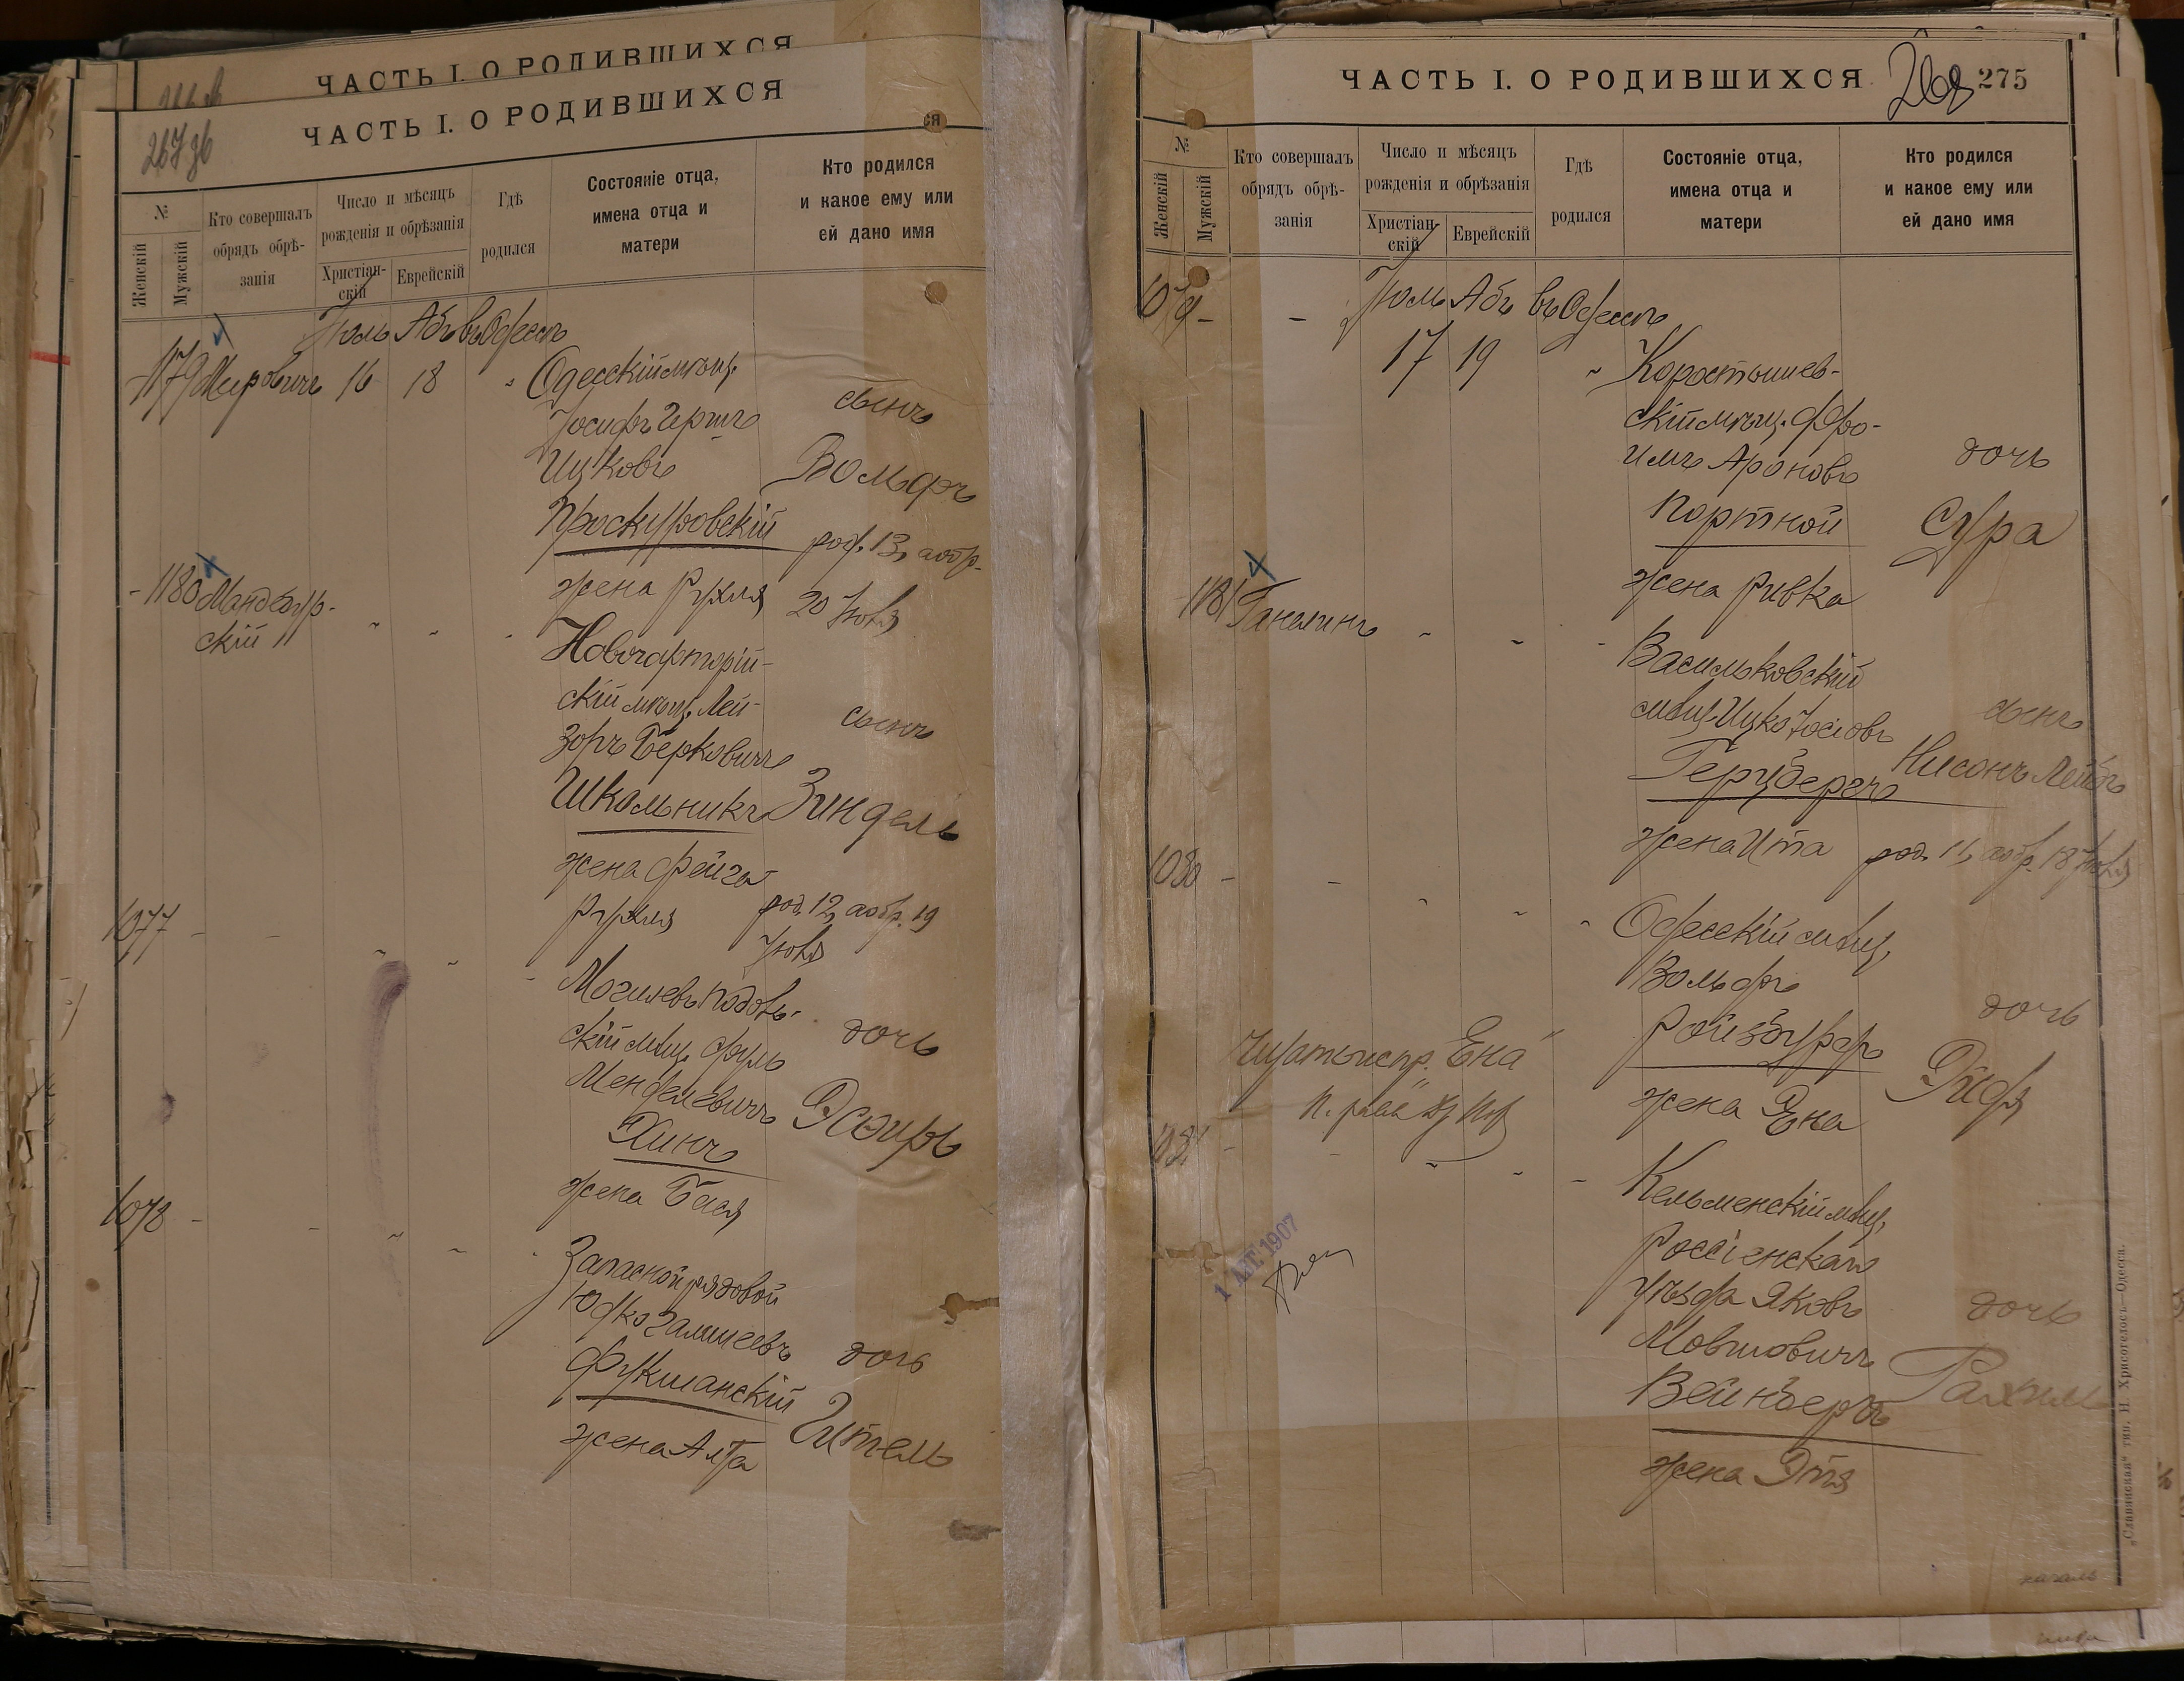 ЧАСТЬ I. О РОДИВШИХСЯ
ЧАСТЬ I. О РОДИВШИХСЯ
267
№
Женскій
Мужскій
Кто совершалъ
обрядъ обрѣ-
занія
Число и мѣсяцъ
рожденія и обрѣзанія
Христіан-
скій
Еврейскій
Гдѣ
родился
Состояніе отца,
имена отца и
матери
Кто родился
и какое ему или
ей дано имя
Іюль Абъ въ Одессѣ
1179 Меровичъ 16 18 " Одесскій мѣщ.
Іосифъ Гершъ
Ицковъ
Проскуровскій
жена Рухля
сынъ
Вольфъ
род. 13, а обр.
20 Іюля
1180 Мандебур-
скій " " "
Новочарторій-
скій мѣщ. Лей-
зоръ Берковичъ
Школьникъ
жена Фейга
Рухля
сынъ
Зиндель
род. 12, а обр. 19
Іюля
1077 - - " " "
Могилевъ Подоль-
скій мѣщ. Сруль
Менделевичъ
Хинъ
жена Бася
дочь
Эсѳирь
1078 - - " " "
Запасной рядовой
Юдко
Фукшанскій
жена Алта
дочь
Ителъ
ЧАСТЬ I. О РОДИВШИХСЯ
268 275
№
Женскій
Мужскій
Кто совершалъ
обрядъ обрѣ-
занія
Число и мѣсяцъ
рожденія и обрѣзанія
Христіан-
скій
Еврейскій
Гдѣ
родился
Состояніе отца,
имена отца и
матери
Кто родился
и какое ему или
ей дано имя
1079 - - Іюль Абъ въ Одессѣ
17 19 " Коростышев-
скій мѣщ. Фро-
имъ Ароновъ
Портной
жена Ривка
дочь
Сура
1181 " " "
Васильковскій
мѣщ. Ицко Іосіовъ
Герцбергъ
жена Ита
сынъ
Нисонъ Лейбъ
род. 11, а обр. 18 Іюля
1080 - - " " "
Одесскій мѣщ.
Вольфъ
Ройзбурдъ
жена Ена
дочь
"Ена"
1081 - - " " "
1 АПГ. 1907
Кельменскій мѣщ.
Россіенскаго
уѣзда Яковъ
Мовшовичъ
Вейнбергъ
жена Этя
дочь
Рахиль
„Славянская“ тип. Н. Хрисогелосъ—Одесса.